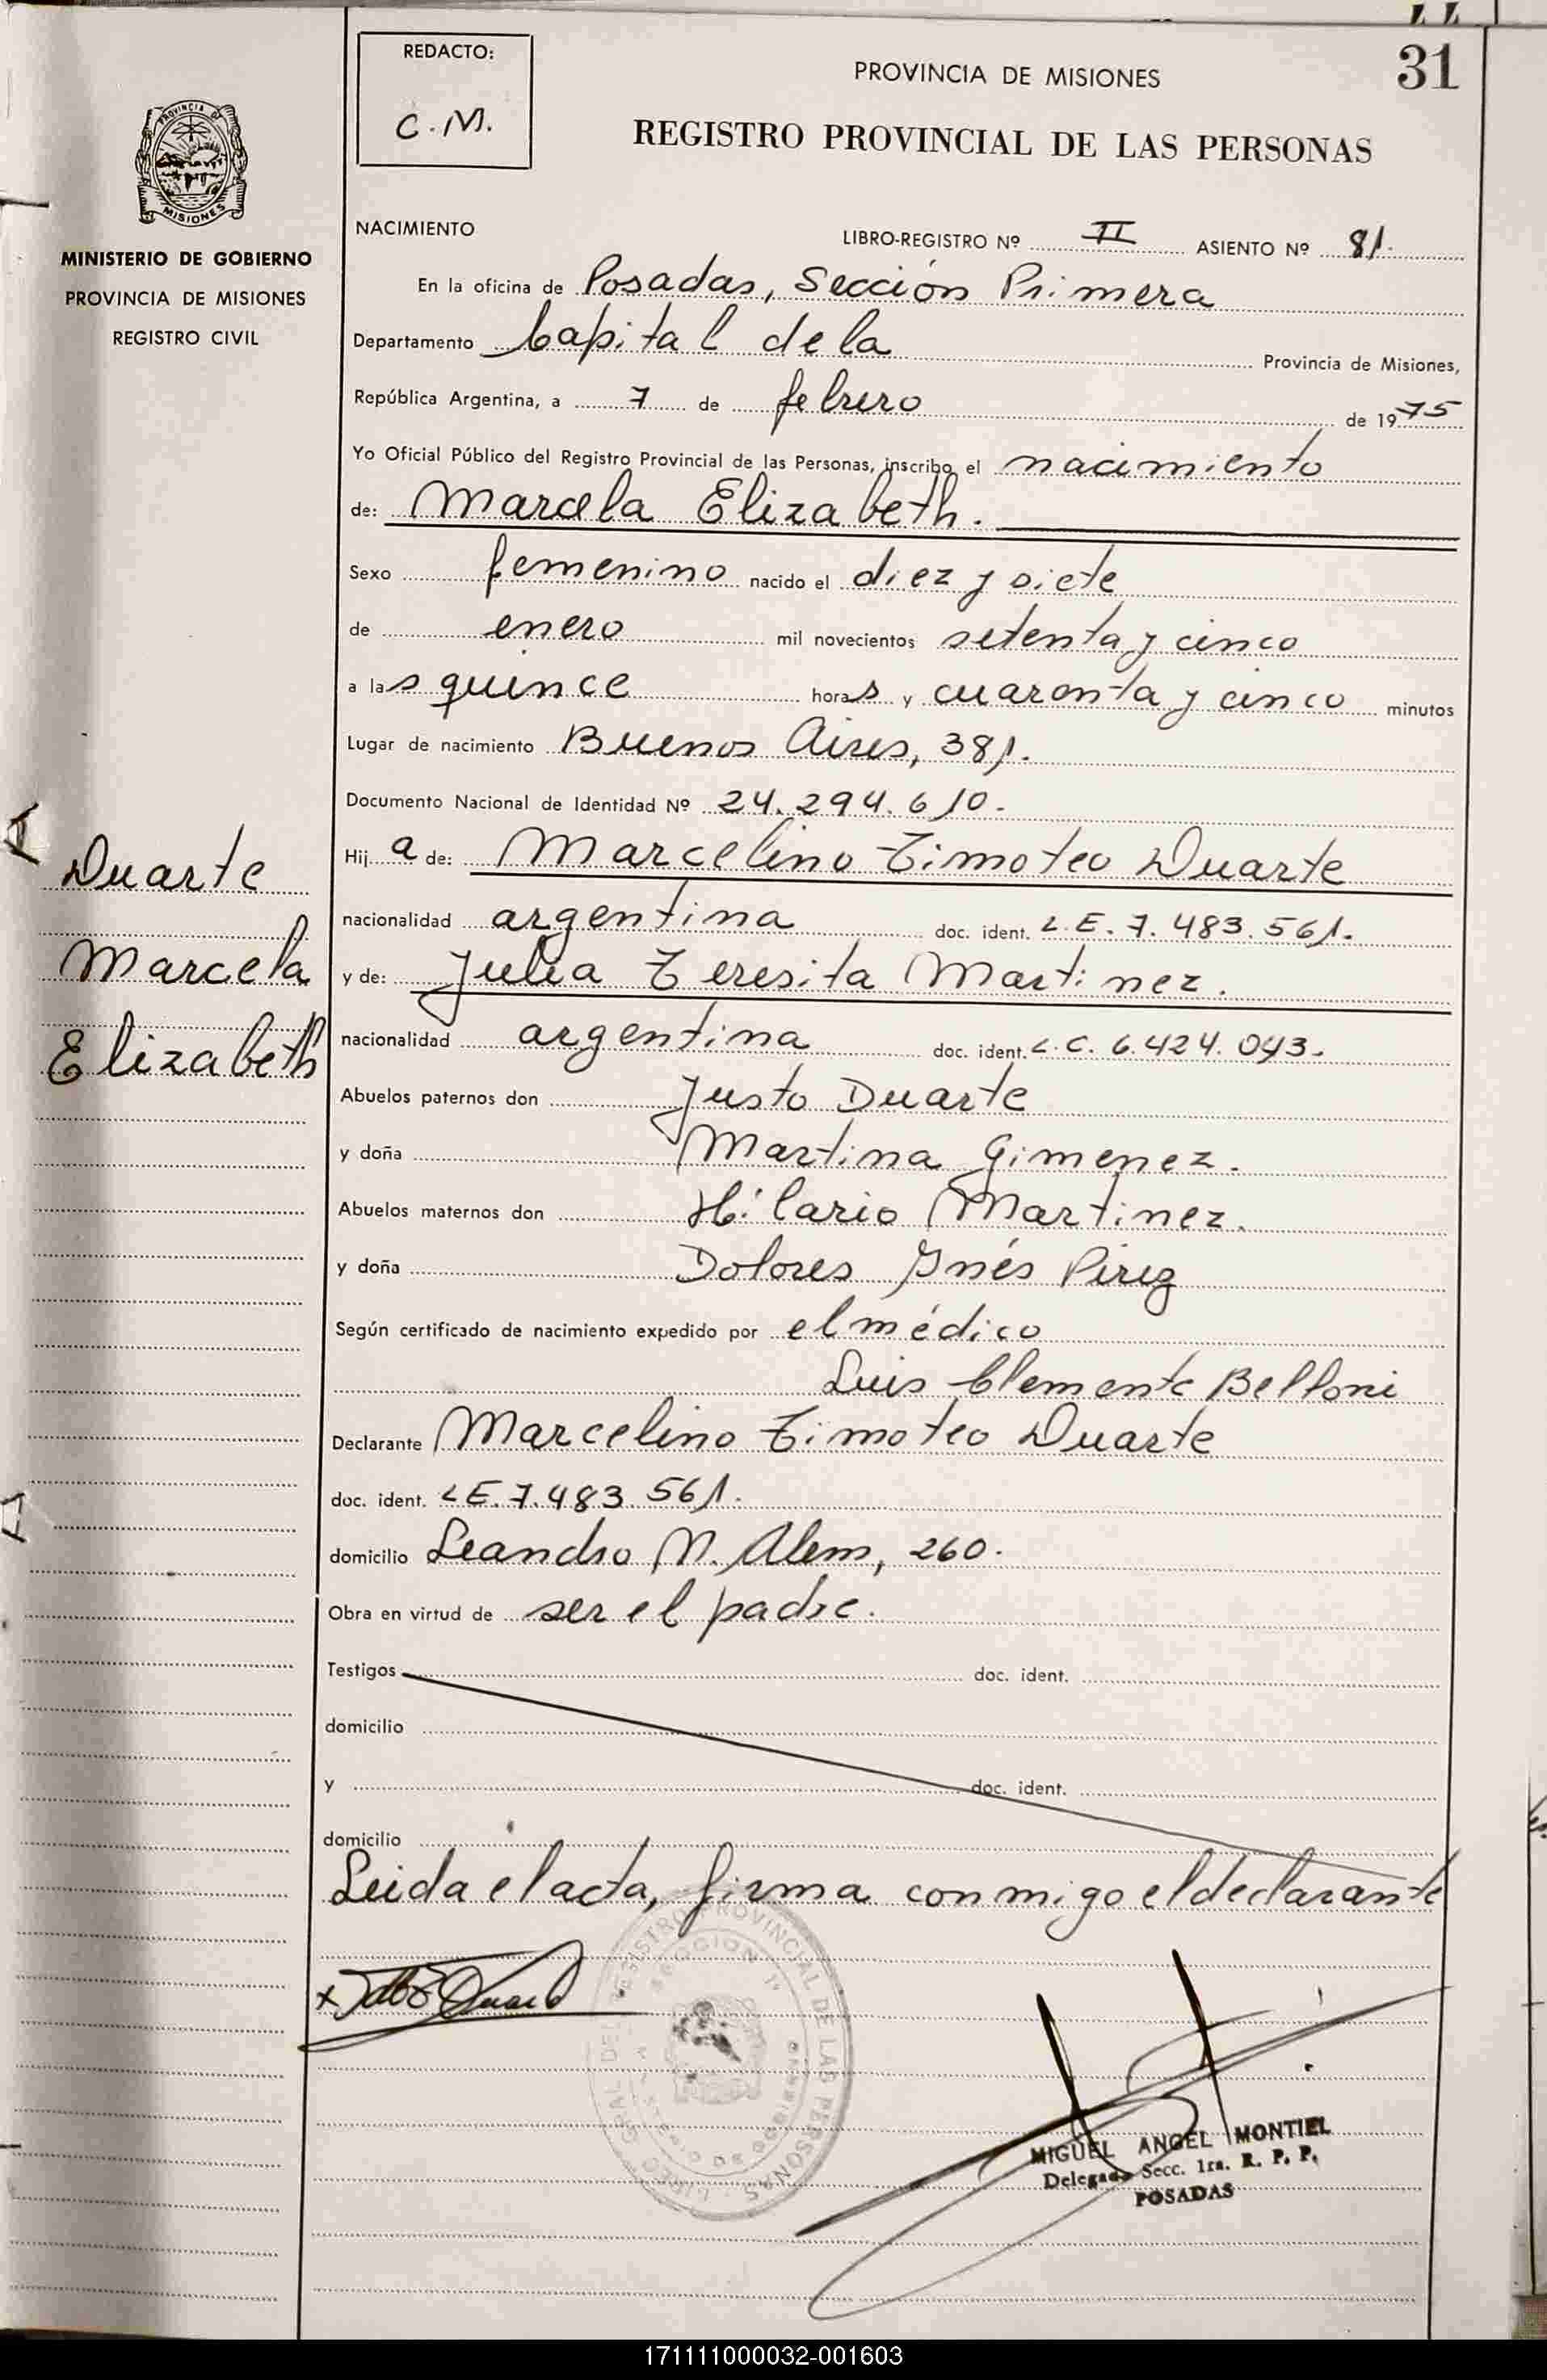 31
REDACTO:
C.M.
PROVINCIA DE MISIONES
REGISTRO PROVINCIAL DE LAS PERSONAS
PROVINCIA DE
MISIONES
MINISTERIO DE GOBIERNO
PROVINCIA DE MISIONES
REGISTRO CIVIL
NACIMIENTO
LIBRO-REGISTRO Nº II ASIENTO Nº 81.
En la oficina de Posadas, Sección Primera
Departamento Capital de la Provincia de Misiones,
República Argentina, a 7 de febrero de 1975
Yo Oficial Público del Registro Provincial de las Personas, inscribo el nacimiento
de: Marcela Elizabeth.
Sexo femenino nacido el diez y siete
de enero mil novecientos setenta y cinco
a las quince horas y cuarenta y cinco minutos
Lugar de nacimiento Buenos Aires, 381.
Documento Nacional de Identidad Nº 24.294.610.
Hija de: Marcelino Timoteo Duarte
nacionalidad argentina doc. ident. L.E. 7.483.561.
y de: Julia Teresita Martinez.
nacionalidad argentina doc. ident. L.C. 6.424.043.
Abuelos paternos don Justo Duarte
y doña Martina Gimenez.
Abuelos maternos don Hilario Martinez.
y doña Dolores Inés Pirez
Según certificado de nacimiento expedido por el médico
Luis Clemente Belloni
Declarante Marcelino Timoteo Duarte
doc. ident. L.E. 7.483.561.
domicilio Leandro N. Alem, 260.
Obra en virtud de ser el padre.
Testigos doc. ident.
domicilio
y doc. ident.
domicilio
Leida el acta, firma conmigo el declarante
Duarte
Marcela
Elizabeth
REGISTRO PROVINCIAL DE LAS PERSONAS
SECCION 1ª
MIGUEL ANGEL MONTIEL
Delegado Secc. 1ra. R. P. P.
POSADAS
171111000032-001603